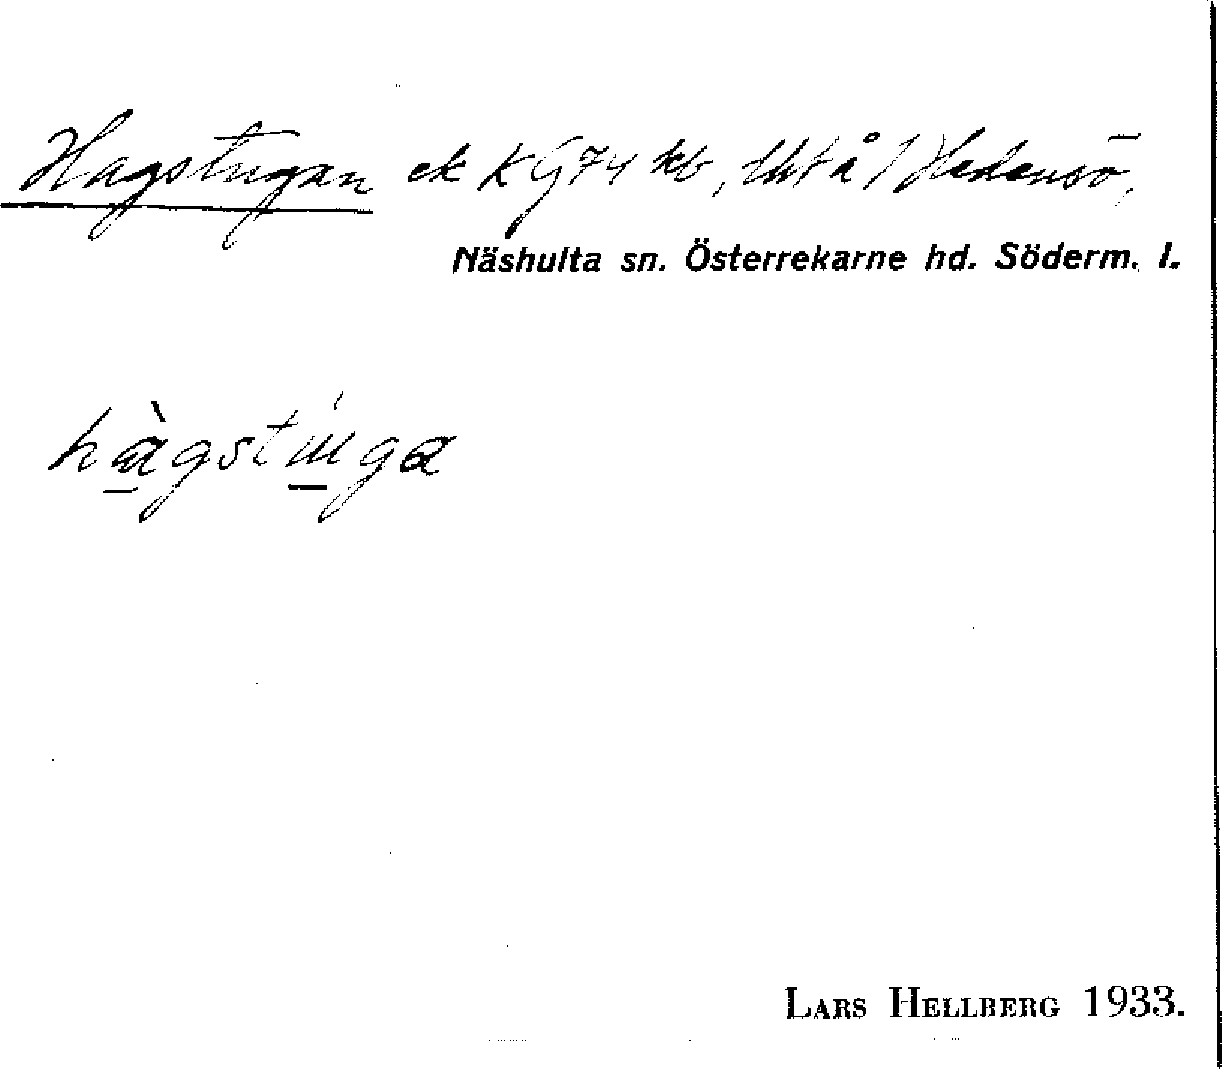 Hagstugan ek KG74 kb, tht å 1 Hedensö,
Näshulta sn. Österrekarne hd. Söderm. l.
hàgstúga
LARS HELLBERG 1933.